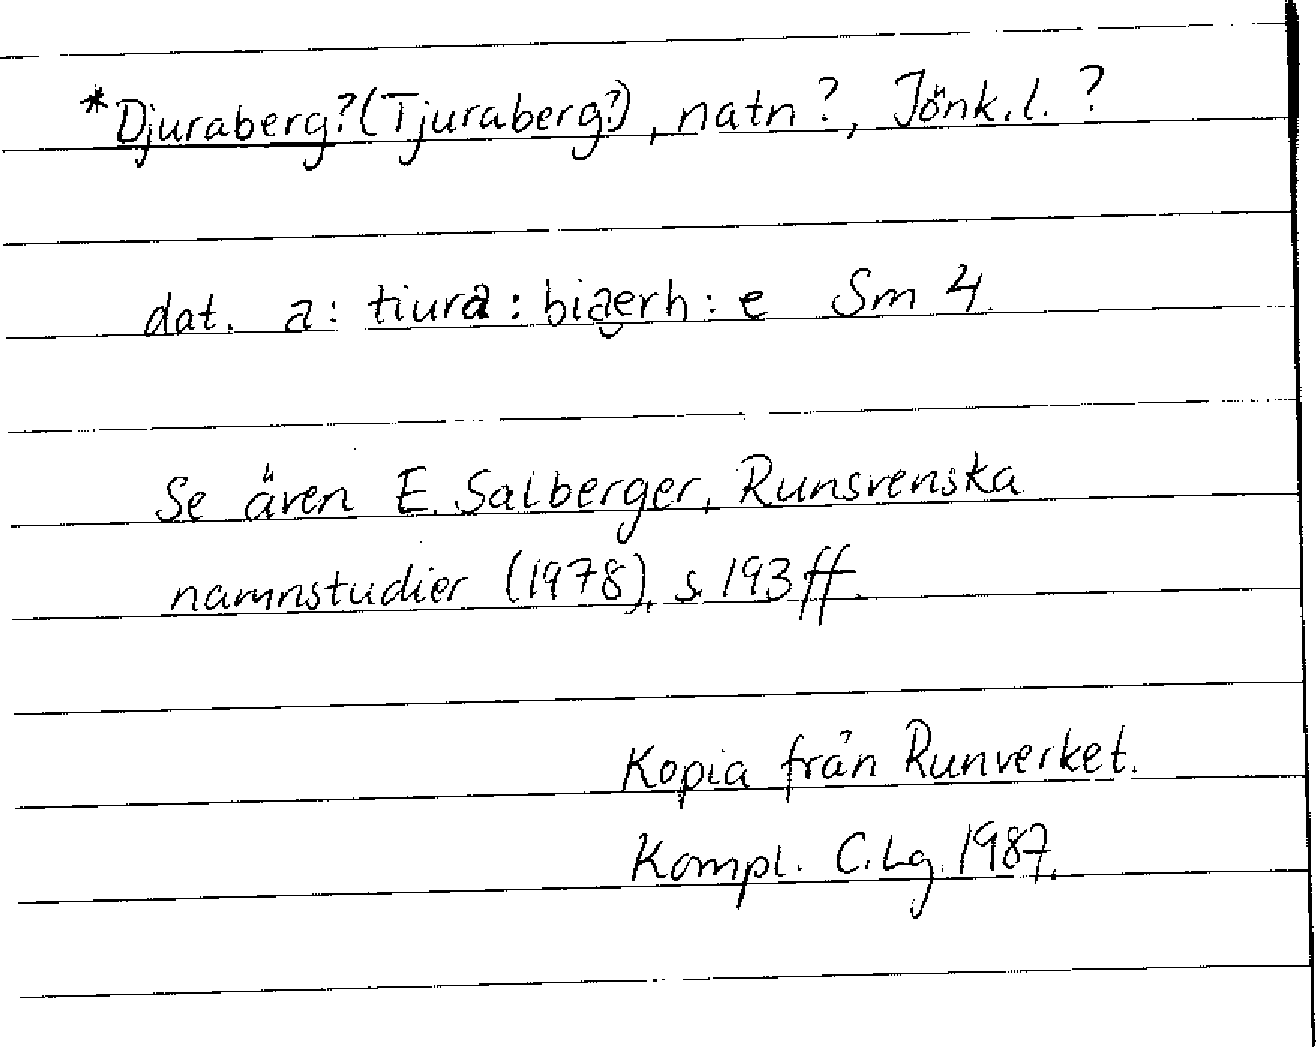 *Djuraberg? (Tjuraberg?), natn?, Jönk.l.?
dat. a: tiura: biaerh: e Sm 4.
Se även E. Salberger, Runsvenska
namnstudier (1978), s. 193 ff.
Kopia från Runverket.
Kompl. C.Lg. 1987.